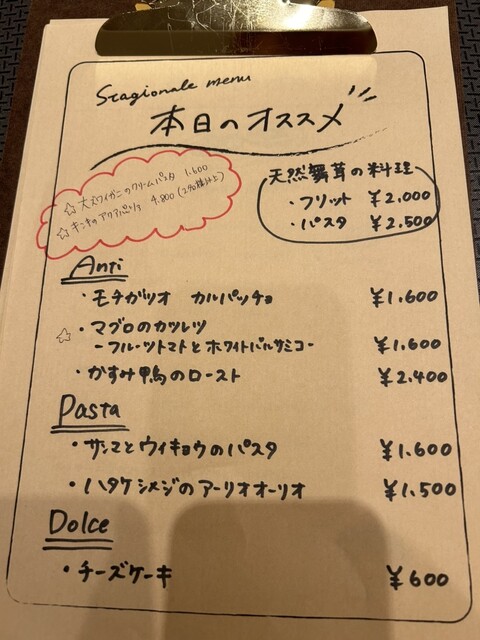 Stagionale menu
本日のオススメ
☆大ズワイガニのクリームパスタ 1.600
☆キンキのアクアパッツァ 4.800(2名様以上)
天然舞茸の料理
・フリット ¥2,000
・パスタ ¥2,500
Anti
・モチガツオ カルパッチョ ¥1.600
☆・マグロのカツレツ
-フルーツトマトとホワイトバルサミコ- ¥1.600
・かすみ鴨のロースト ¥2.400
Pasta
・サンマとウイキョウのパスタ ¥1.600
・ハタケシメジのアーリオオーリオ ¥1.500
Dolce
・チーズケーキ ¥600